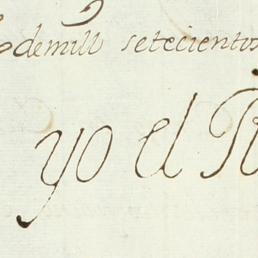 demill setecientos
yo el R